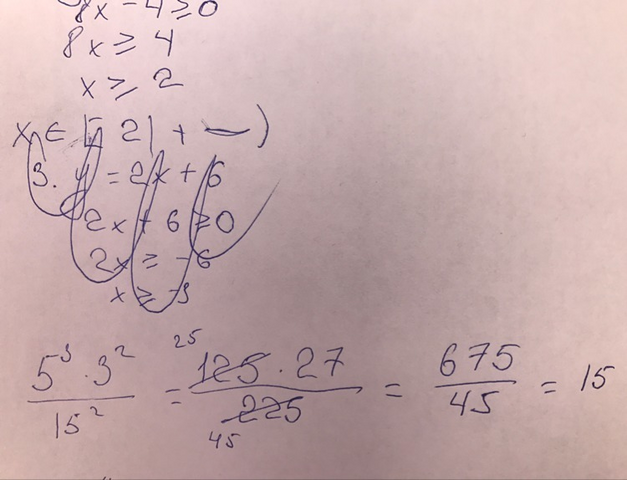 8x - 4 ≥ 0
8x ≥ 4
x ≥ 2
x ∈ [ 2 | + — )
3. y = 2x + 6
2x + 6 ≥ 0
2x ≥ -6
x ≥ -3
5³ · 3² / 15² = 25 125 · 27 / 225 45 = 675 / 45 = 15